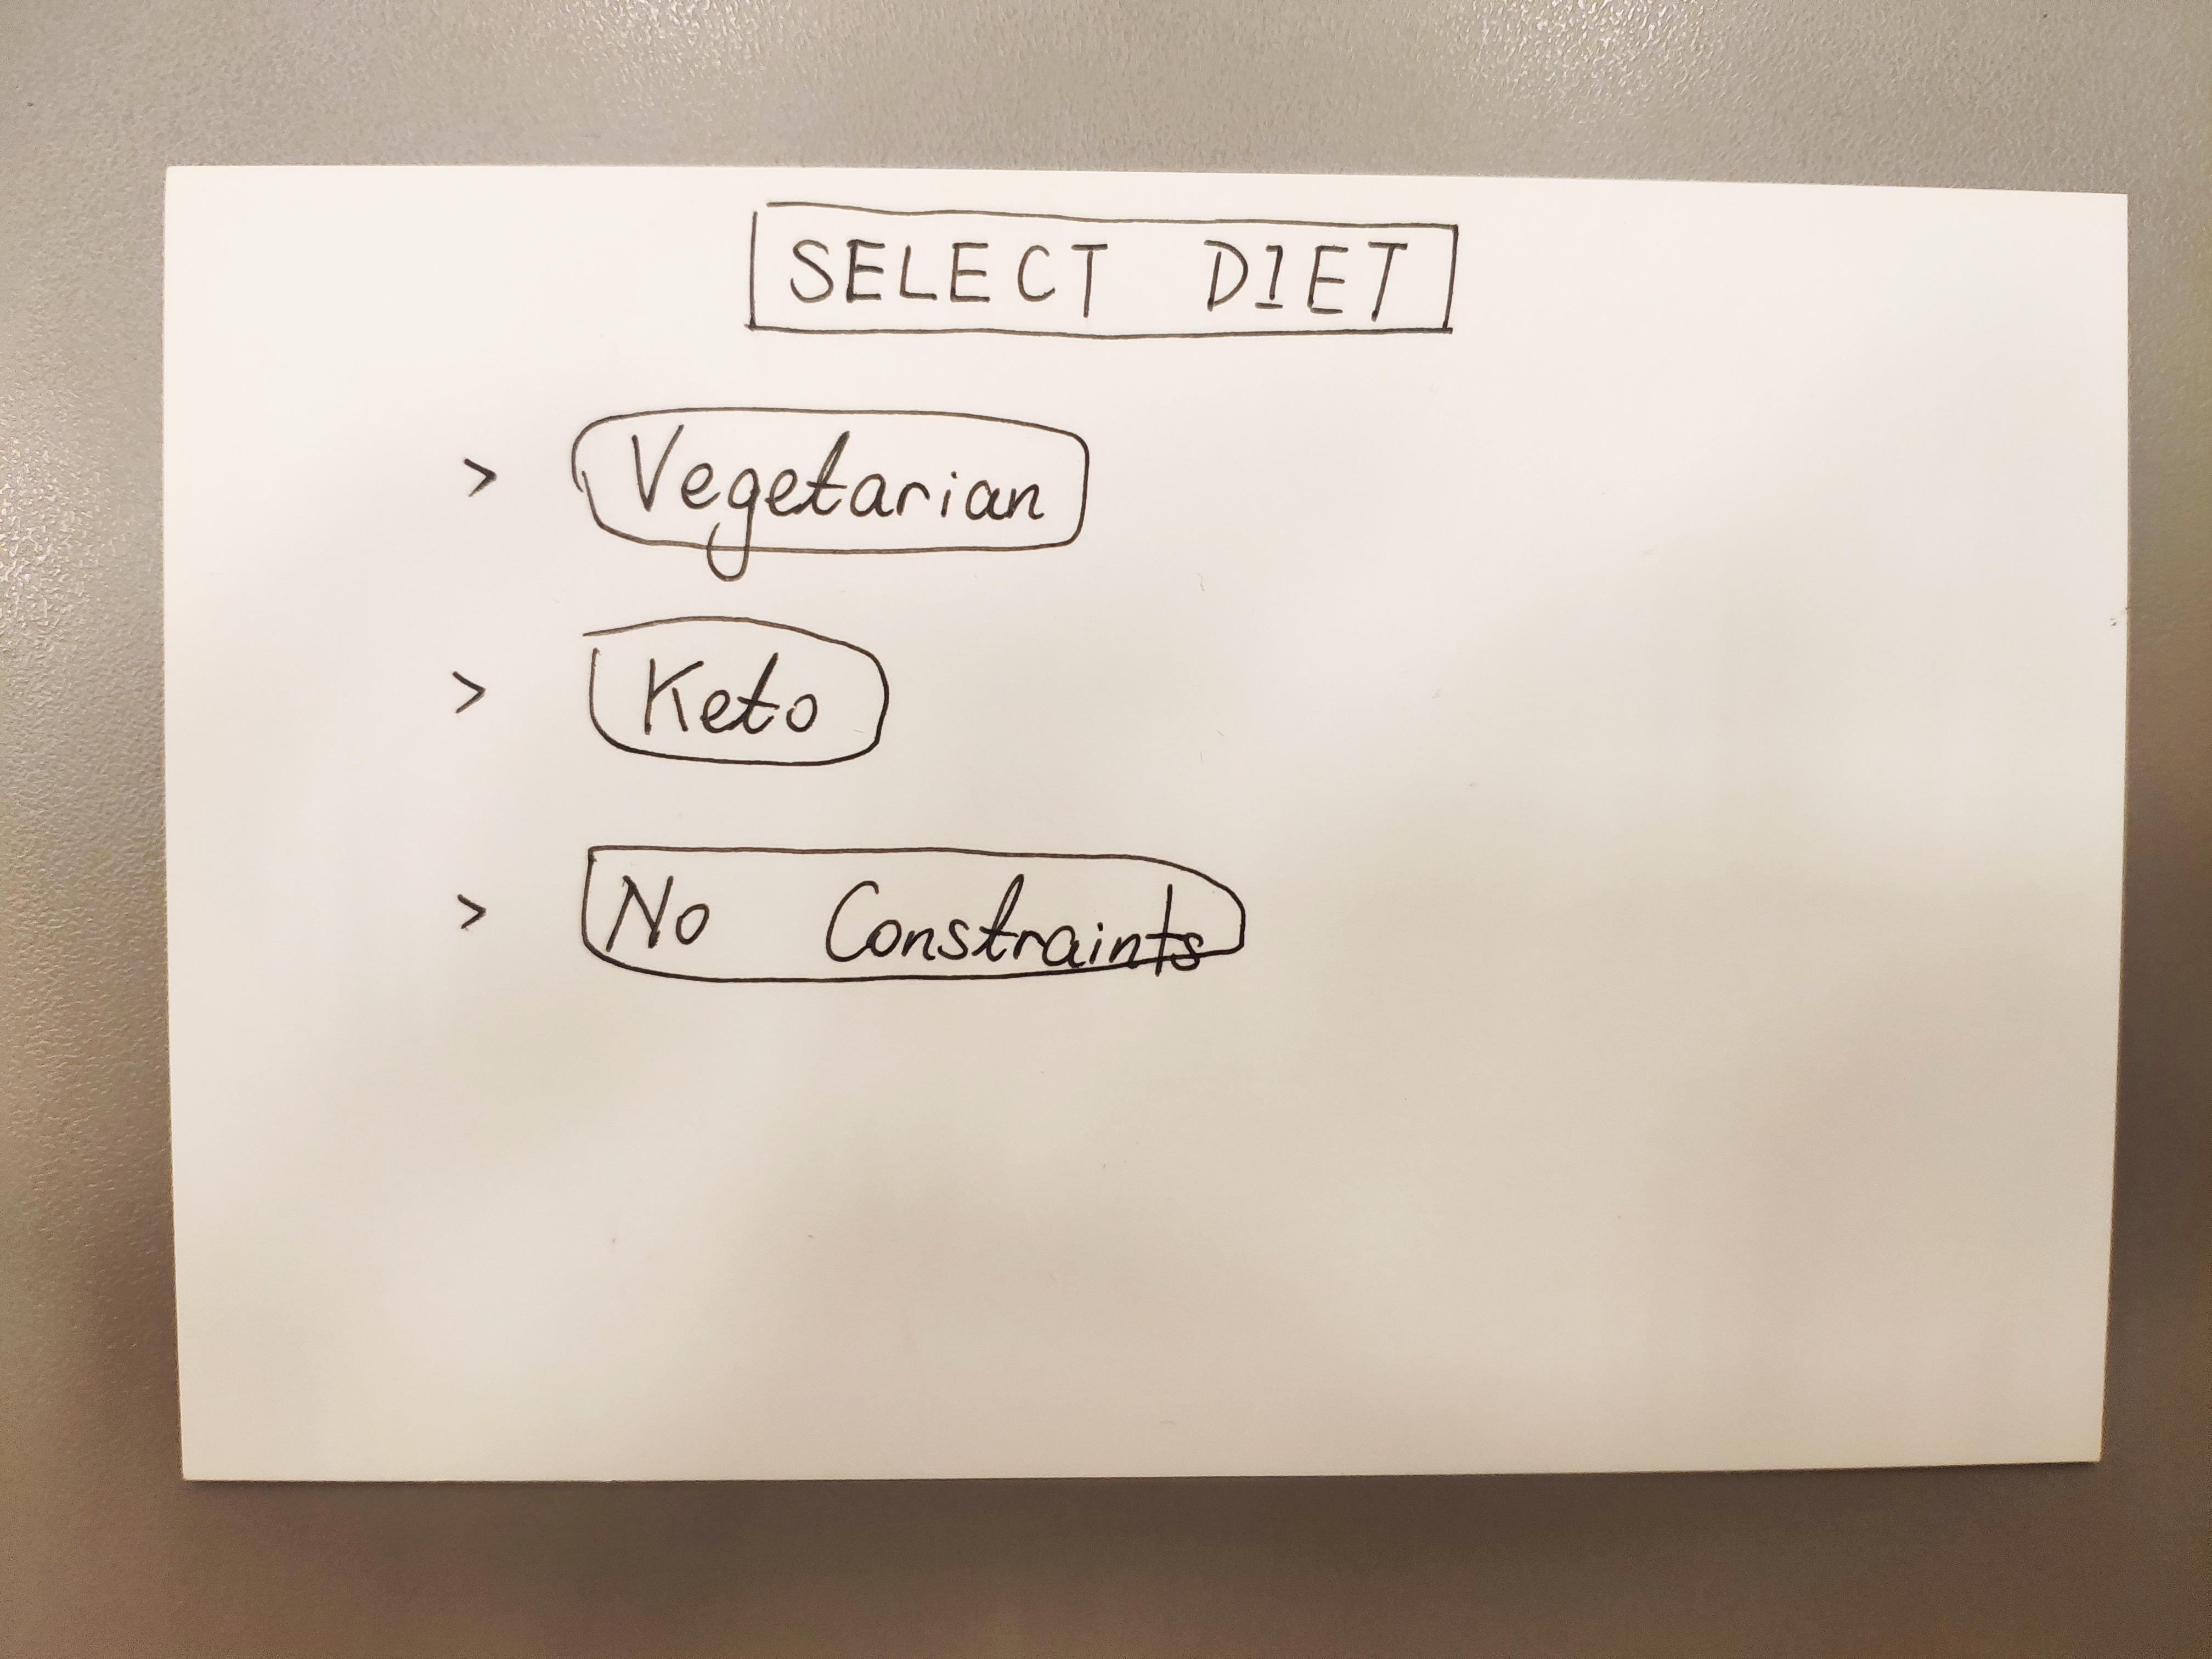 SELECT DIET
> Vegetarian
> Keto
> No Constraints